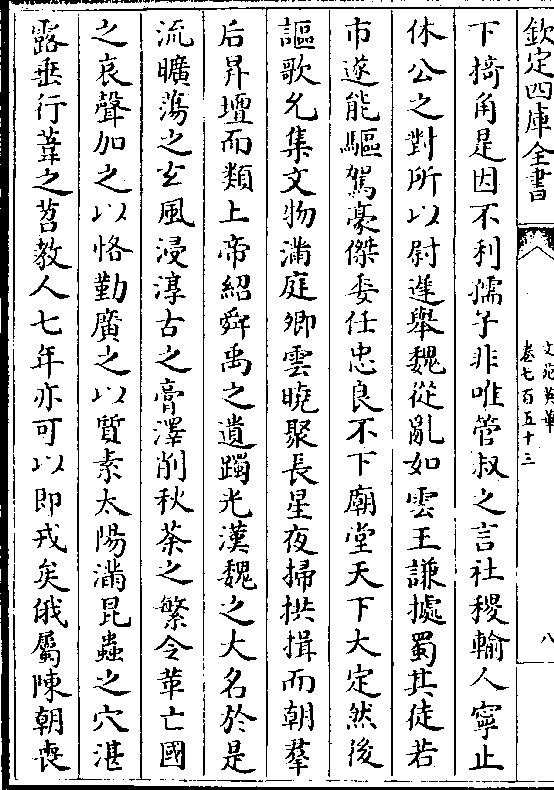 欽定四庫全書
文苑英華
卷七百五十三
八
下掎角是因不利孺子非唯管叔之言社稷輸人寧止
休公之對所以尉遲舉魏從亂如雲王謙據蜀其徒若
市遂能驅駕豪傑委任忠良不下廟堂天下大定然後
謳歌允集文物滿庭卿雲曉聚長星夜掃拱揖而朝羣
后昇壇而類上帝紹舜禹之遺躅光漢魏之大名於是
流曠蕩之玄風浸淳古之膏澤削秋荼之繁令革亡國
之哀聲加之以恪勤廣之以質素太陽滿昆蟲之穴湛
露垂行葦之苕教人七年亦可以即戎矣俄屬陳朝喪